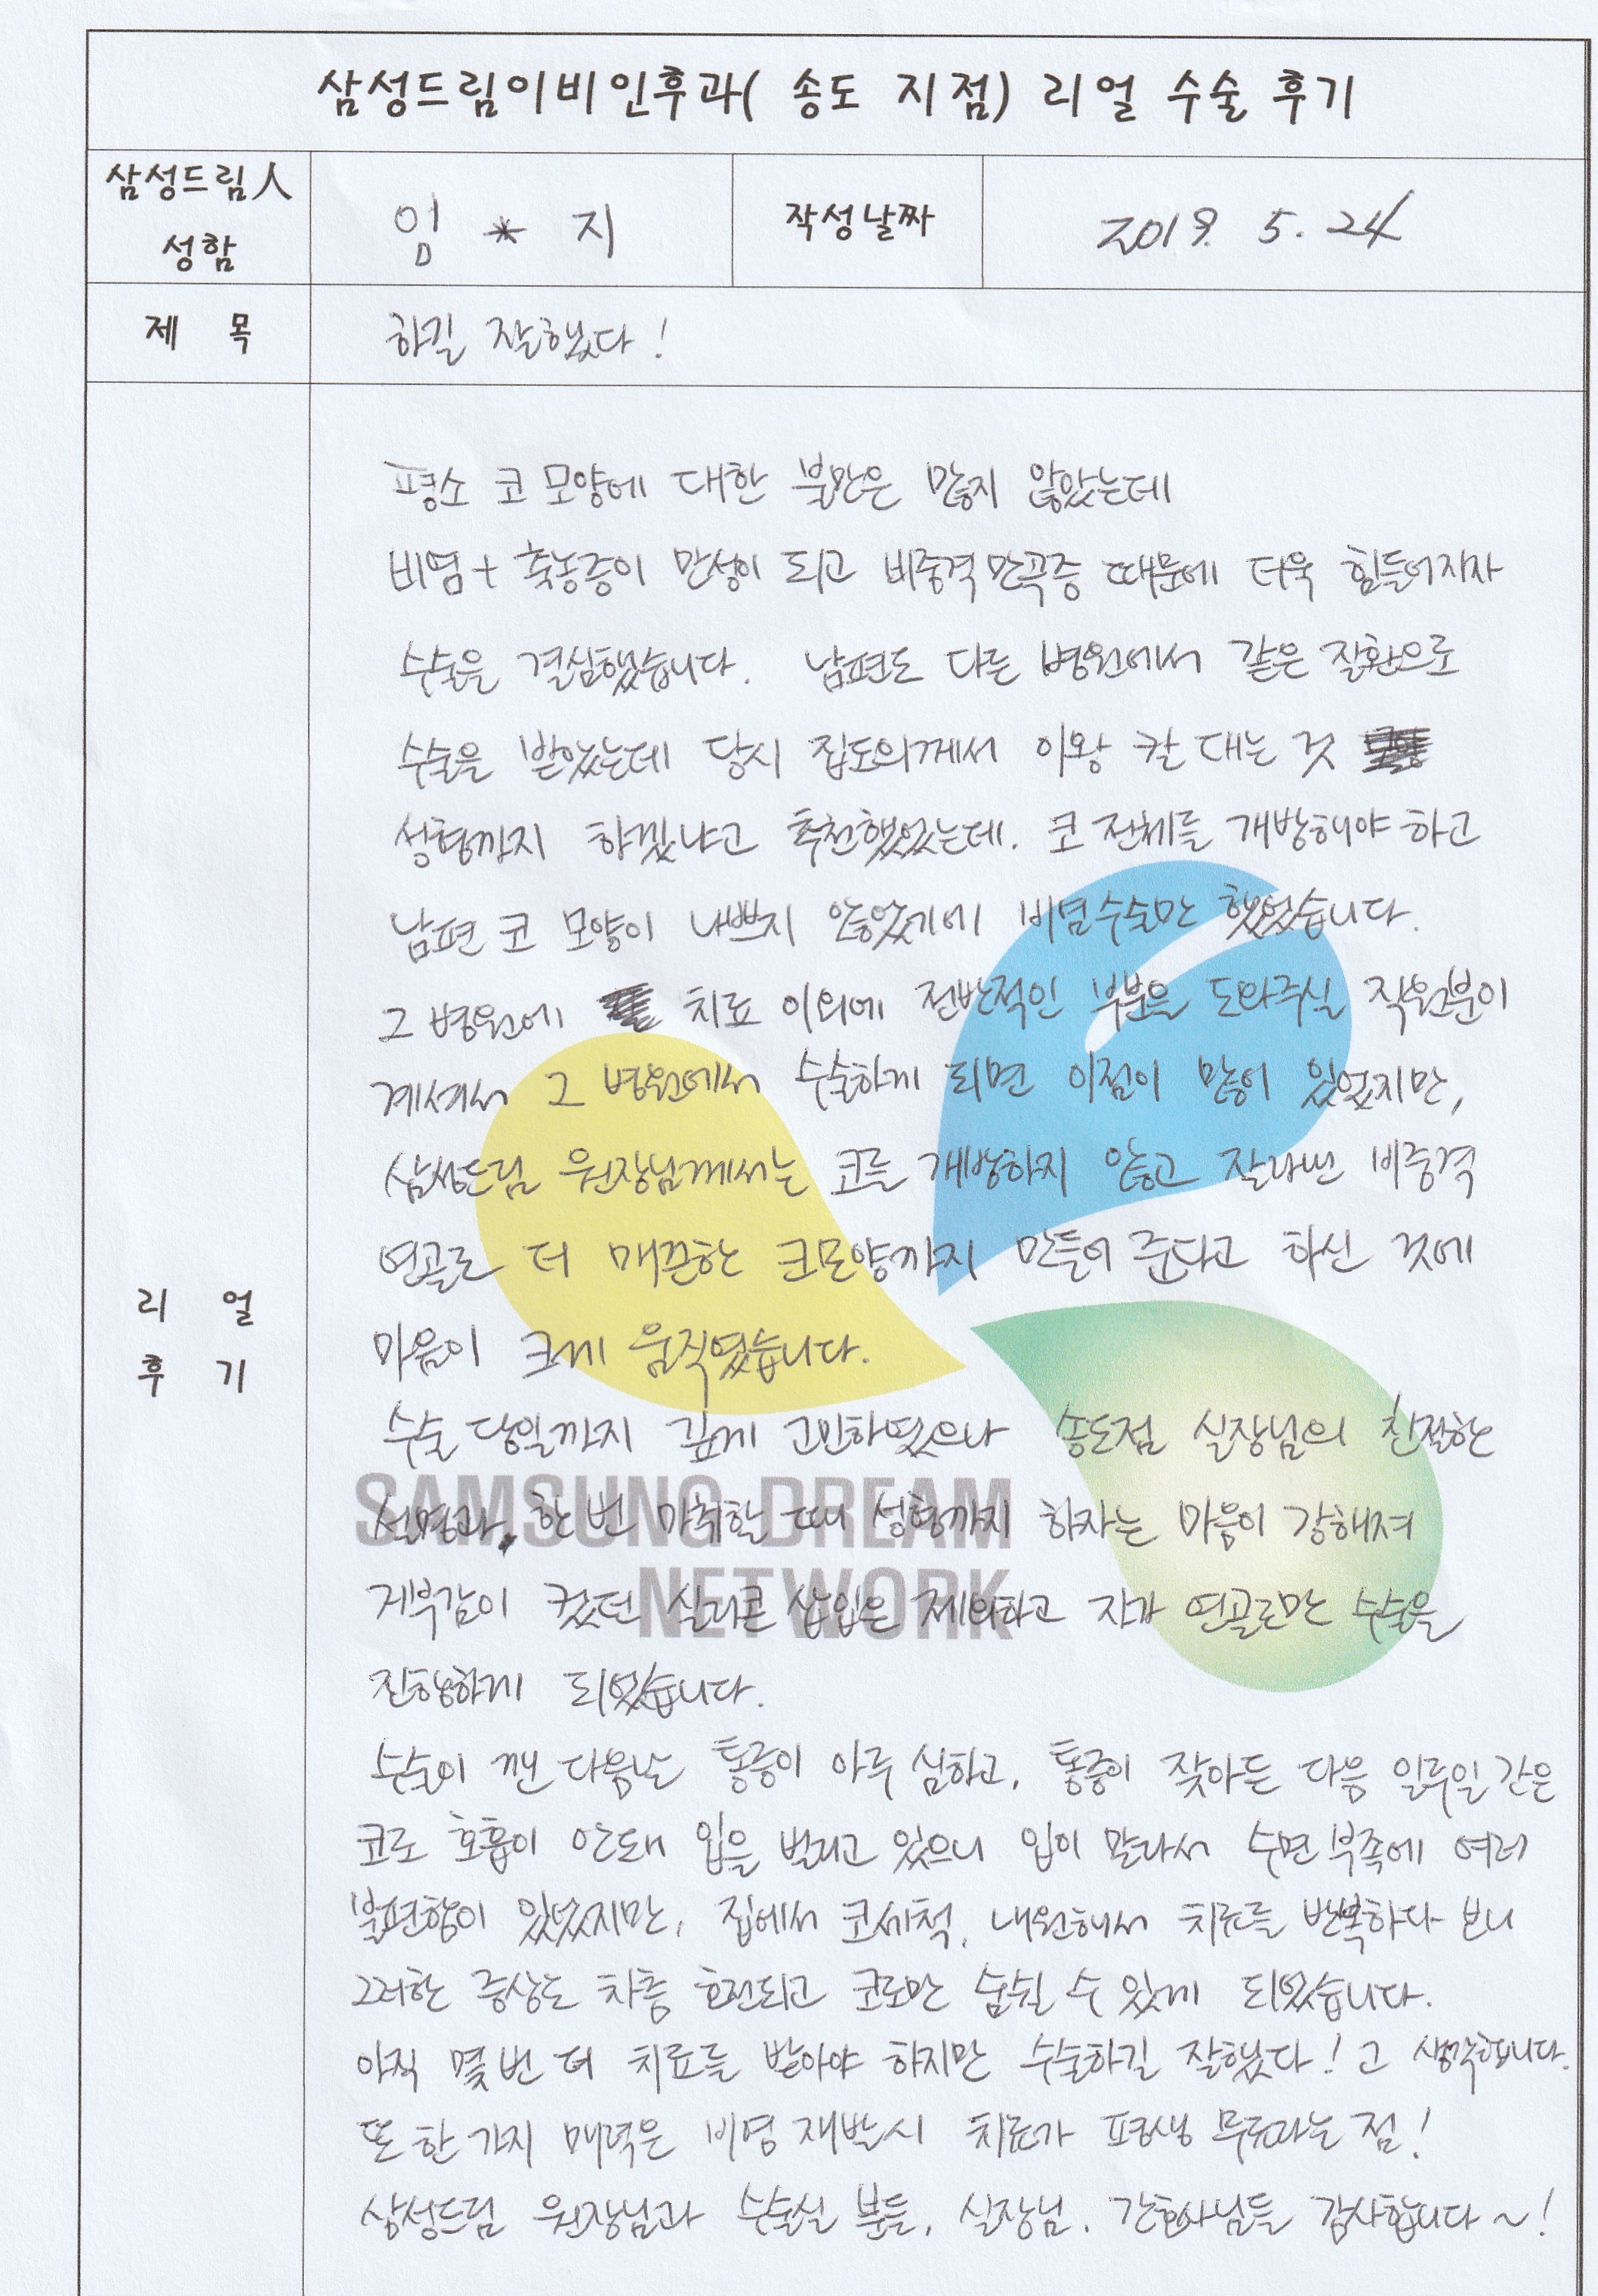 삼성드림이비인후과( 송도 지점) 리얼 수술 후기
삼성드림人
성함
임 * 지
작성날짜
2019. 5. 24
제 목
하길 잘했다!
리 얼
후 기
평소 코 모양에 대한 불만은 많지 않았는데
비염+축농증이 만성이 되고 비중격만곡증 때문에 더욱 힘들어지자
수술을 결심했습니다. 남편도 다른 병원에서 같은 질환으로
수술을 받았는데 당시 집도의께서 이왕 칼 대는 것
성형까지 하겠냐고 추천했었는데. 코 전체를 개방해야 하고
남편 코 모양이 나쁘지 않았기에 비염수술만 했었습니다.
그 병원에 치료 이외에 전반적인 부분을 도와주실 직원분이
계셔서 그 병원에서 수술하게 되면 이점이 많이 있었지만,
삼성드림 원장님께서는 코를 개방하지 않고 잘라낸 비중격
연골로 더 매끈한 코모양까지 만들어 준다고 하신 것에
마음이 크게 움직였습니다.
수술 당일까지 깊게 고민하였으나 송도점 실장님의 친절한
설명과, 한 번 마취할 때 성형까지 하자는 마음이 강해져
거부감이 컸던 실리콘 삽입은 제외하고 자가 연골로만 수술을
진행하게 되었습니다.
수술이 깬 다음날 통증이 아주 심하고, 통증이 잦아든 다음 일주일 간은
코로 호흡이 안돼 입을 벌리고 있으니 입이 말라서 수면부족에 여러
불편함이 있었지만, 집에서 코세척, 내원해서 치료를 반복하다 보니
그러한 증상도 차츰 호전되고 코로만 숨쉴 수 있게 되었습니다.
아직 몇번 더 치료를 받아야 하지만 수술하길 잘했다! 고 생각합니다.
또 한가지 매력은 비염 재발시 치료가 평생 무료라는 점!
삼성드림 원장님과 수술실 분들, 실장님, 간호사님들 감사합니다~!
SAMSUNG DREAM
NETWORK